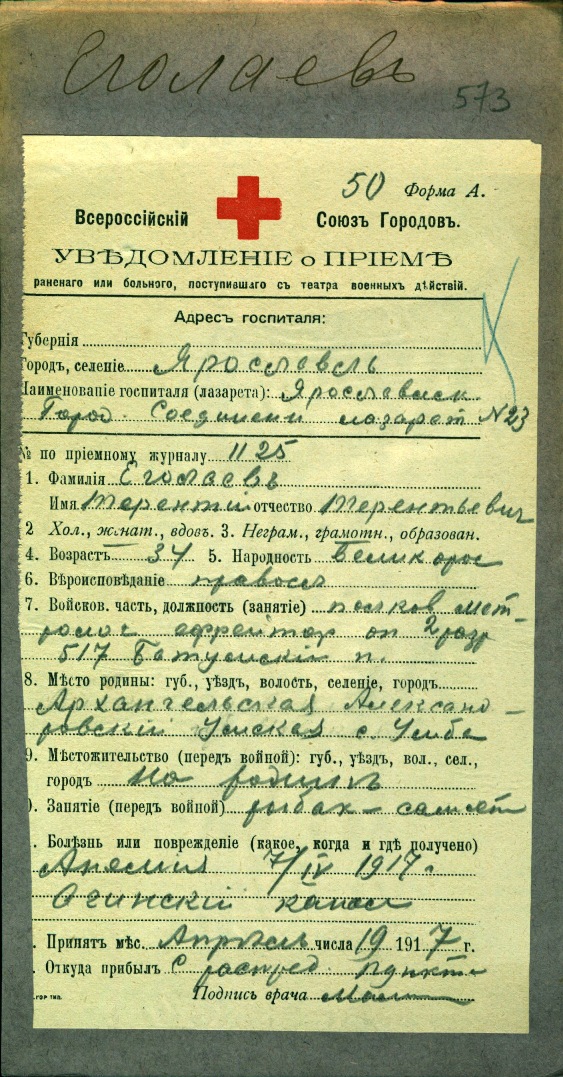 Еголаевъ
573
50 Форма А.
Всероссійскій Союзъ Городовъ.
УВѢДОМЛЕНІЕ о ПРІЕМѢ
раненаго или больного, поступившаго съ театра военныхъ дѣйствій.
Адресъ госпиталя:
Губернія
Городъ, селеніе Ярославль
Наименованіе госпиталя (лазарета): Ярославск
Город. Соединени лазарет N 23
№ по пріемному журналу 1125
1. Фамилія Еголаевъ
Имя Терентий отчество Терентьевич
2 Хол., женат., вдовъ. 3. Неграм., грамотн., образован.
4. Возрастъ 34 5. Народность Великорос
6. Вѣроисповѣданіе правосл
7. Войсков. часть, должность (занятіе)
ефрейтор 2 разр
517 Батумскій п.
8. Мѣсто родины: губ., уѣздъ, волость, селеніе, городъ
Архангельская Александ-
ровскій Умская с. Умба
9. Мѣстожительство (передъ войной): губ., уѣздъ, вол., сел.,
городъ на родинѣ
). Занятіе (передъ войной) рыбак
. Болѣзнь или поврежденіе (какое, когда и гдѣ получено)
Анемия 7/IV 1917 г.
Осинскій канал
. Принятъ мѣс. Апрѣль числа 19 1917 г.
. Откуда прибылъ С распред. пункта
.ГОР ТИП. Подпись врача